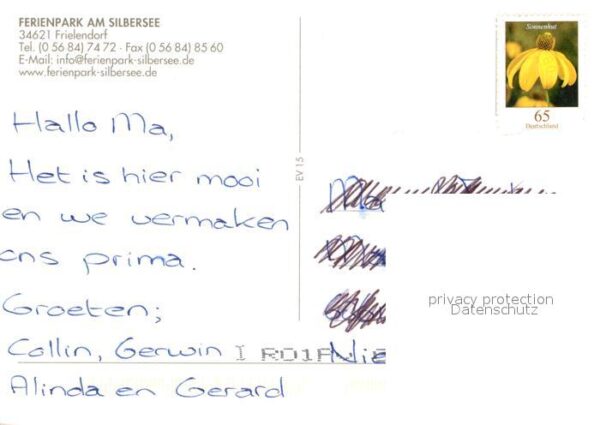 FERIENPARK AM SILBERSEE
34621 Frielendorf
Tel. (0 56 84) 74 72 · Fax (0 56 84) 85 60
E-Mail: info@ferienpark-silbersee.de
www.ferienpark-silbersee.de
Hallo Ma,
Het is hier mooi
en we vermaken
ons prima.
Groeten;
Collin, Gerwin
Alinda en Gerard
EV 15
Sonnenhut
65
Deutschland
privacy protection
Datenschutz